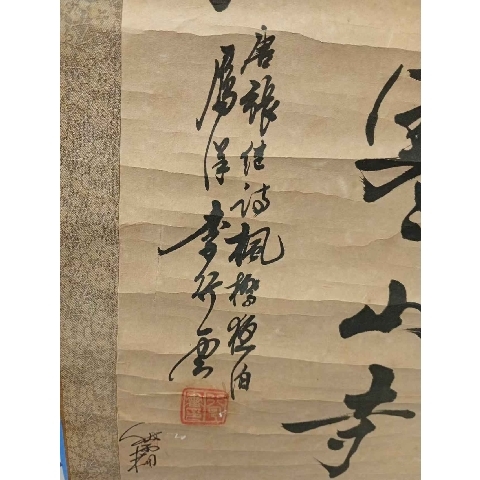 寒山寺
唐張継詩楓橋夜泊
鴈洋李行雲